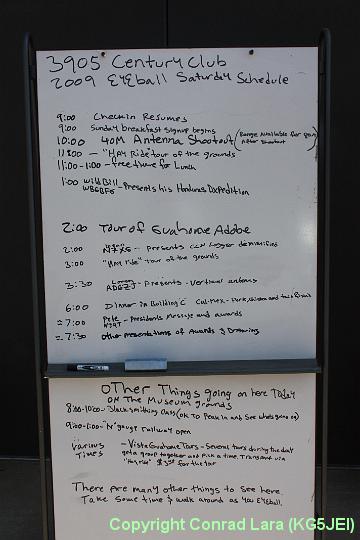 3905 Century Club
2009 EyEball Saturday Schedule
9:00 Checkin Resumes
9:00 Sunday breakfast signup begins
10:00 40M Antenna Shootout (Range Available for
After Shootout
11:00 - "Hay Ride" tour of the grounds
11:00-1:00 - free time for Lunch
1:00 Wild Bill - Presents his Honduras DXpedition
WB6BFG
2:00 Tour of Guahome Adobe
2:00 - Presents Logger demistified
3:00 "Hay ride" tour of the grounds
3:30 - Presents - Vertical antennas
6:00 Dinner in Building C Cal-Mex - Pork, chicken and
≈ 7:00 Pete - Presidents Message and awards
≈ 7:30 other presentations of Awards & Drawing
OTher Things going on here Today
ON The Museum grounds
8:00-10:00 - Blacksmithing Class (OK To Peak in and See whats going on)
9:00-1:00 - "N" gauge Railway open
Various - Vista Guahome Tours - Several tours during the day
Times get a group together and Pick a time. Transport via
"Hay ride" for the tour
There are many other things to see here.
Take some time & walk around as you EyEball.
Copyright Conrad Lara (KG5JEI)